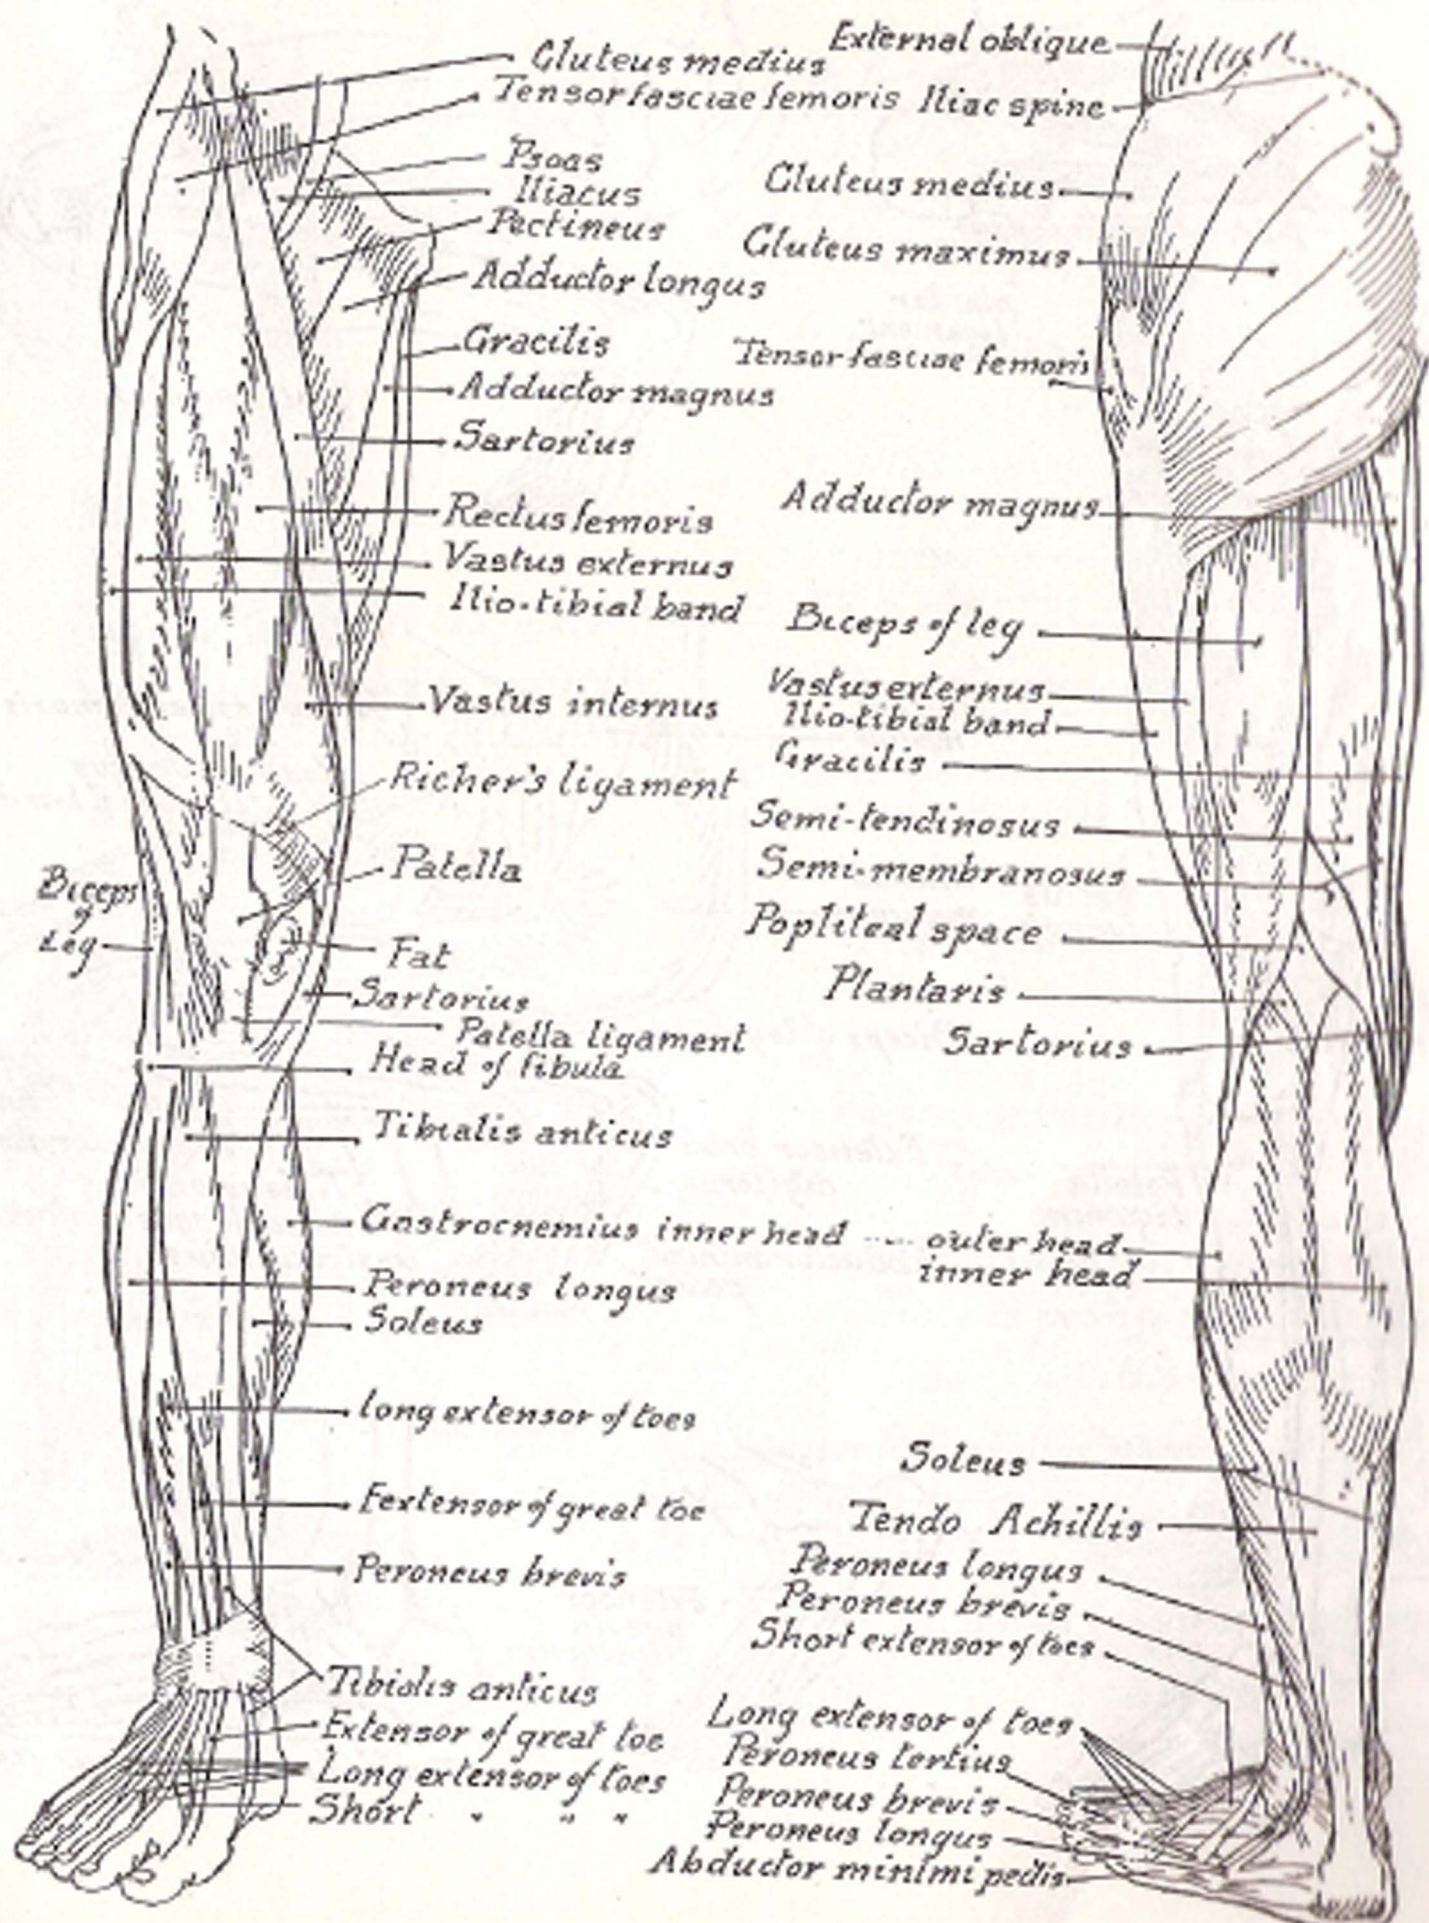 Gluteus medius
Tensor fasciae femoris
Psoas
Iliacus
Pectineus
Adductor longus
Gracilis
Adductor magnus
Sartorius
Rectus femoris
Vastus externus
Ilio-tibial band
Vastus internus
Richer's ligament
Patella
Biceps
of
Leg
Fat
Sartorius
Patella ligament
Head of fibula
Tibialis anticus
Gastrocnemius inner head .... outer head
inner head
Peroneus longus
Soleus
long extensor of toes
Fextensor of great toe
Peroneus brevis
Tibialis anticus
Extensor of great toe
Long extensor of toes
Short " " "
External oblique
Iliac spine
Gluteus medius
Gluteus maximus
Tensor fasciae femoris
Adductor magnus
Biceps of leg
Vastus externus
Ilio-tibial band
Gracilis
Semi-tendinosus
Semi-membranosus
Popliteal space
Plantaris
Sartorius
Soleus
Tendo Achillis
Peroneus longus
Peroneus brevis
Short extensor of toes
Long extensor of toes
Peroneus tertius
Peroneus brevis
Peroneus longus
Abductor minimi pedis